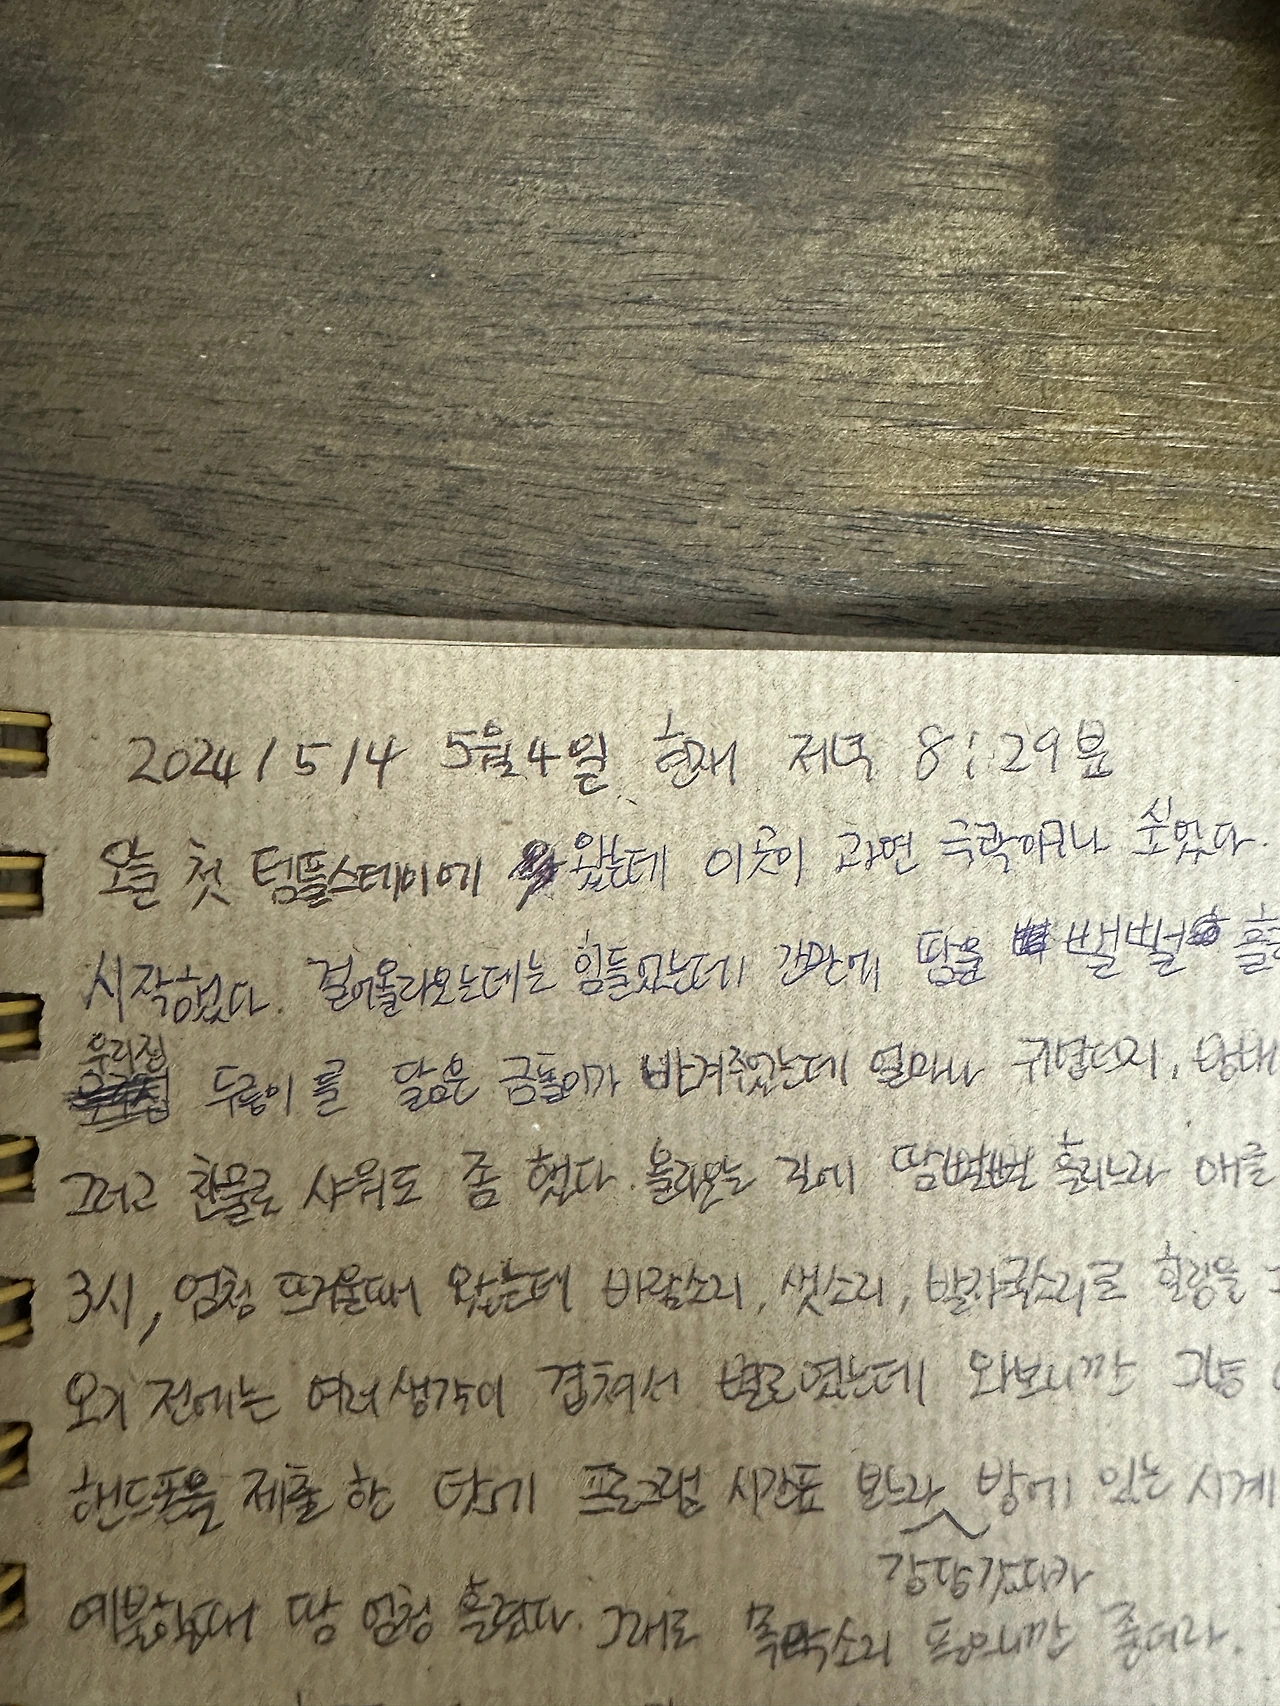 2024/5/4 5월4일 현재 저녁 8:29분
오늘 첫 템플스테이에 왔는데 이곳이 과연 극락이구나 싶었다.
시작했다. 걸어올라오는데는 힘들었는데 간만에 땀을 뻘뻘
우리집
두릉이를 닮은 금돌이가 반겨주었는데 얼마나 귀엽던지,
그러고 찬물로 샤워도 좀 했다. 올라오는 길에 땀뻘뻘 흘리느라 애를
3시, 엄청 뜨거울때 왔는데 바람소리, 새소리, 발자국소리로 힐링을
오기 전에는 여러생각이 겹쳐서 별로였는데 와보니깐 그냥
핸드폰을 제출한 닷에 프로그램 시간표 보느라 방에 있는 시계
강당갔다가
예불할때 땀 엄청 흘렸다. 그래도 목탁소리 들으니깐 좋더라.